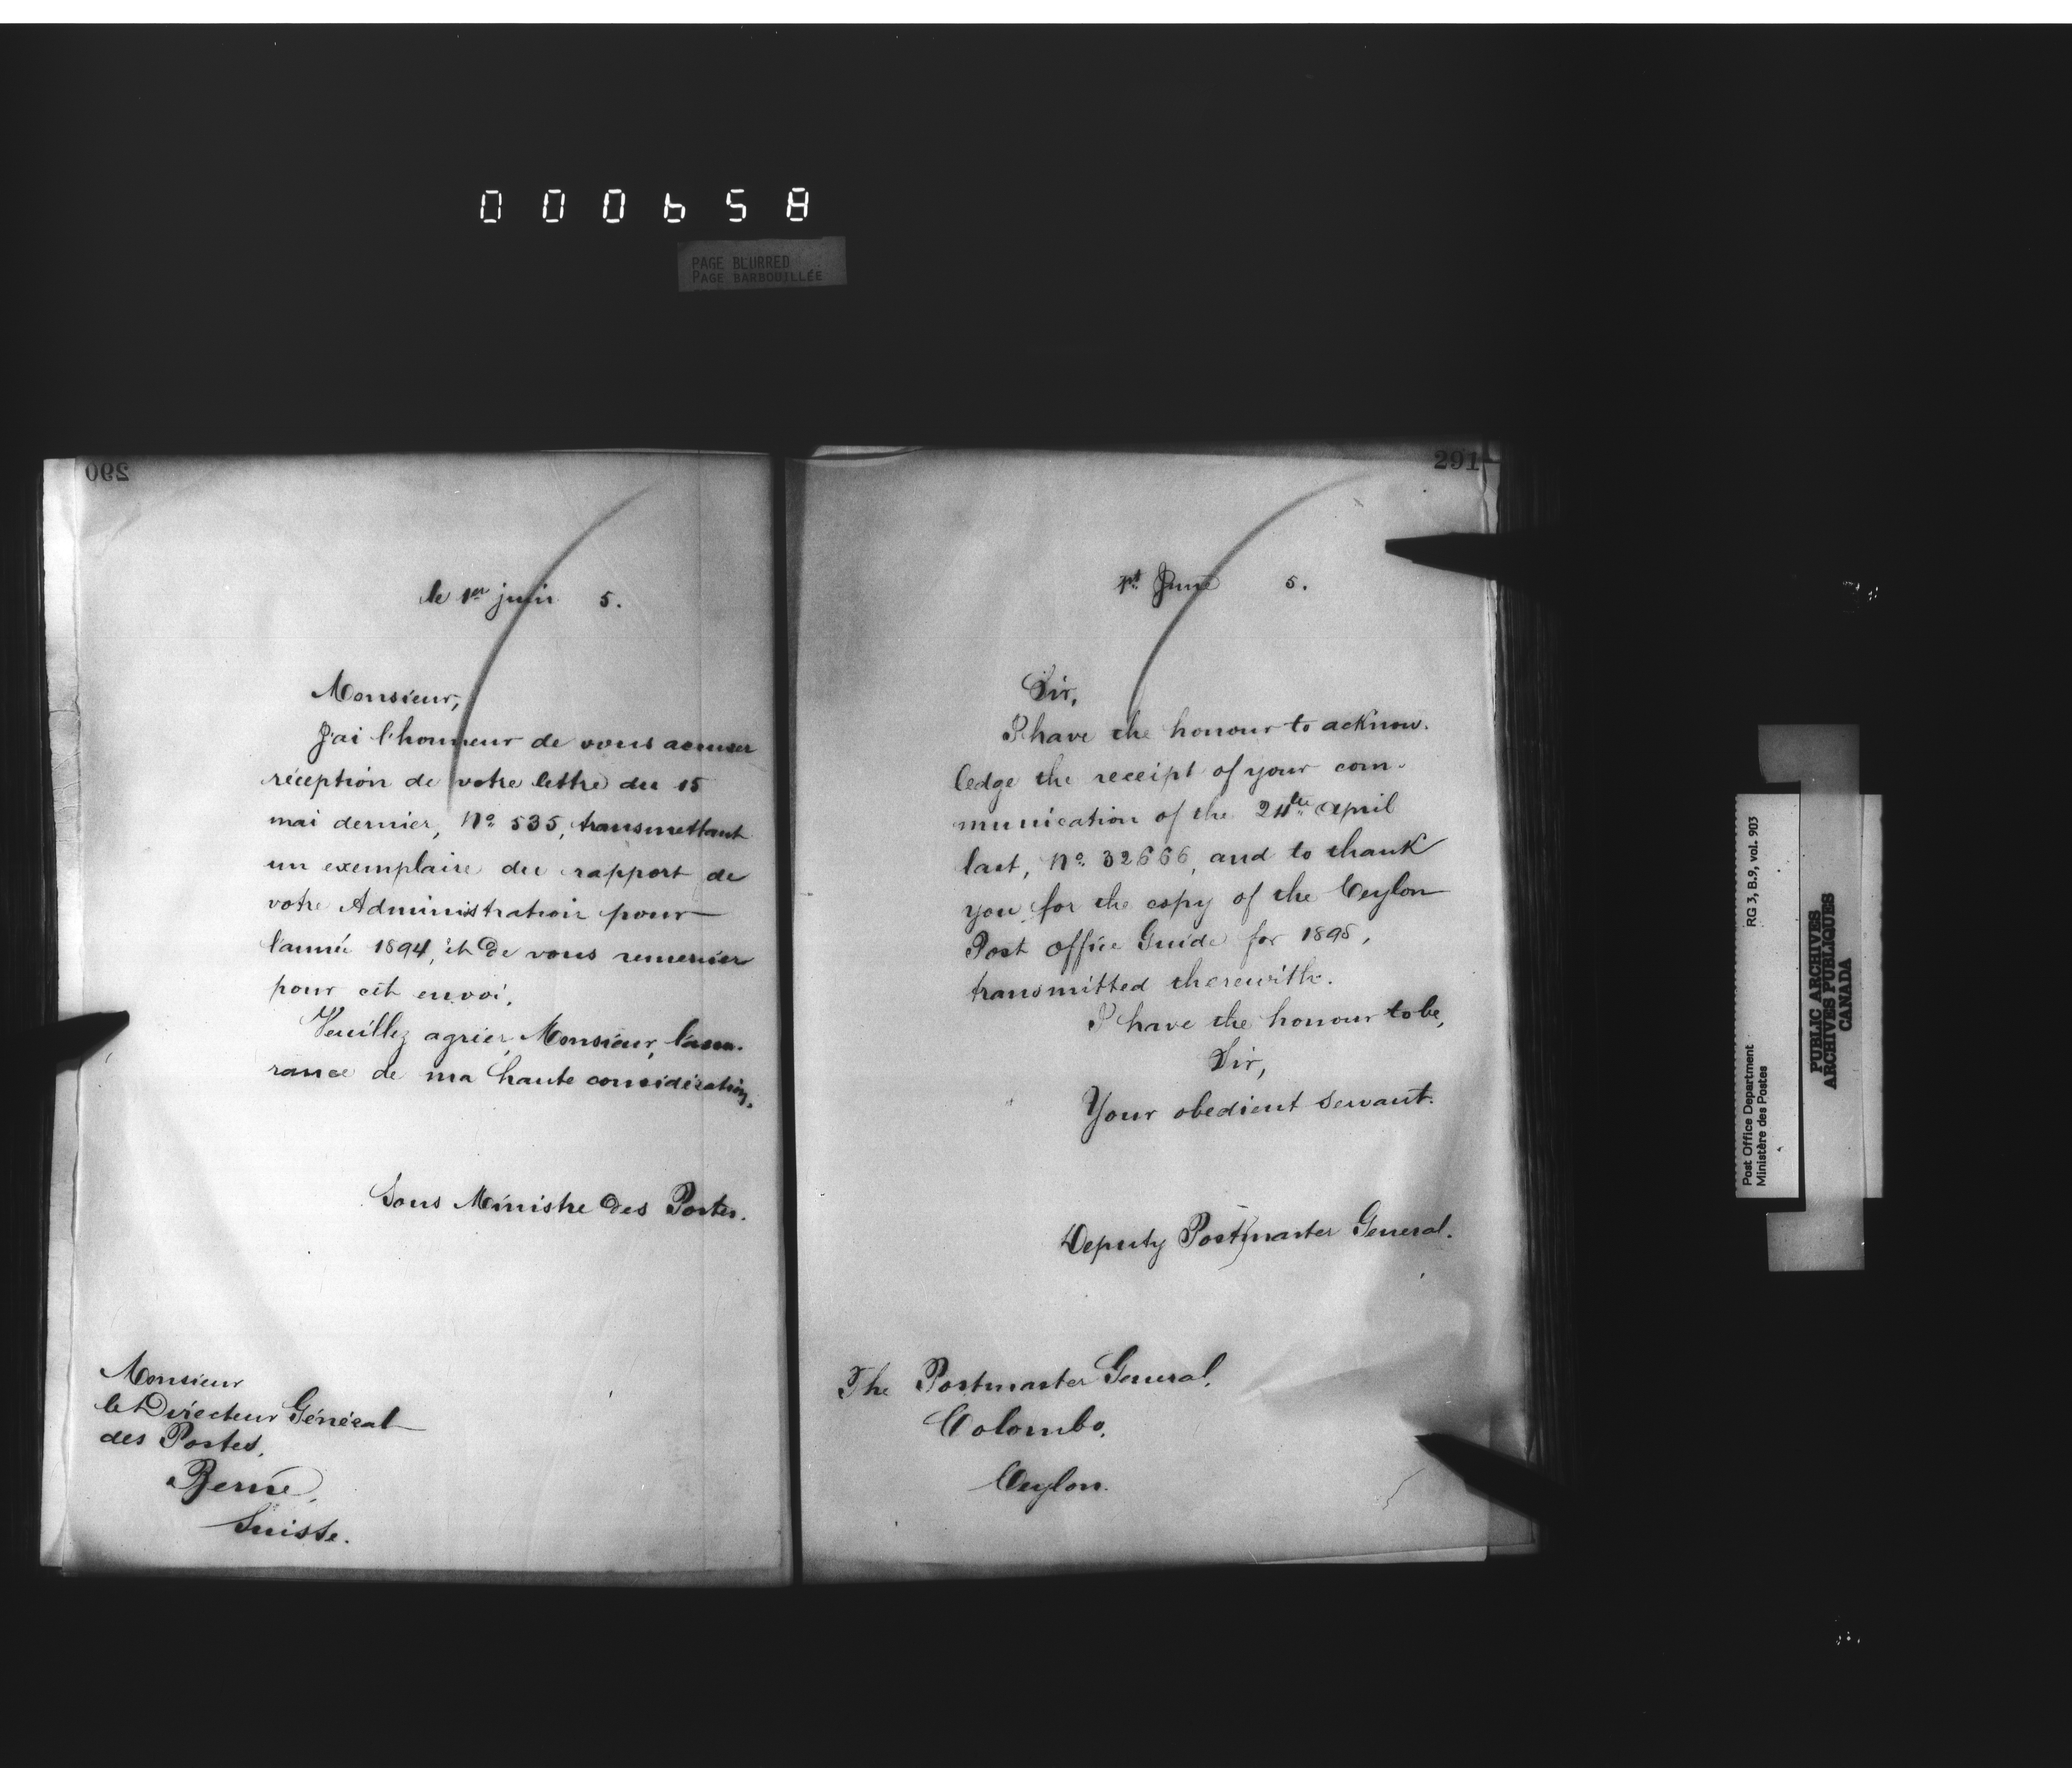 000658
PAGE BLURRED
PAGE BARBOUILLÉE
290
le 1er juin 5.
Monsieur,
J'ai l'honneur de vous accuser
réception de votre lettre du 15
mai dernier, No 535, transmettant
un exemplaire du rapport de
votre Administration pour
l'année 1894, et de vous remercier
pour cet envoi.
Veuillez agréer, Monsieur, l'assu-
rance de ma haute considération.
Sous Ministre des Postes.
Monsieur
le Directeur Général
des Postes,
Berne,
Suisse.
291
1st June 5.
Sir,
I have the honour to acknow-
ledge the receipt of your com-
munication of the 24th April
last, No 32666, and to thank
you for the copy of the Ceylon
Post Office Guide for 1895,
transmitted therewith.
I have the honour to be,
Sir,
Your obedient servant.
Deputy Postmaster General.
The Postmaster General,
Colombo,
Ceylon.
Post Office Department RG 3, B.9, vol. 903
Ministère des Postes
PUBLIC ARCHIVES
ARCHIVES PUBLIQUES
CANADA